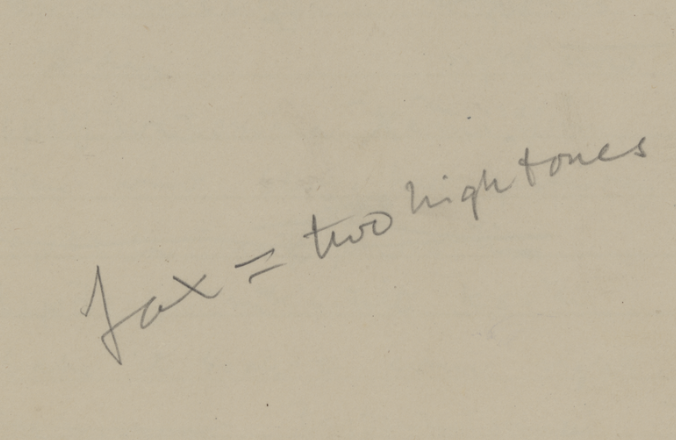 fax = two high tones